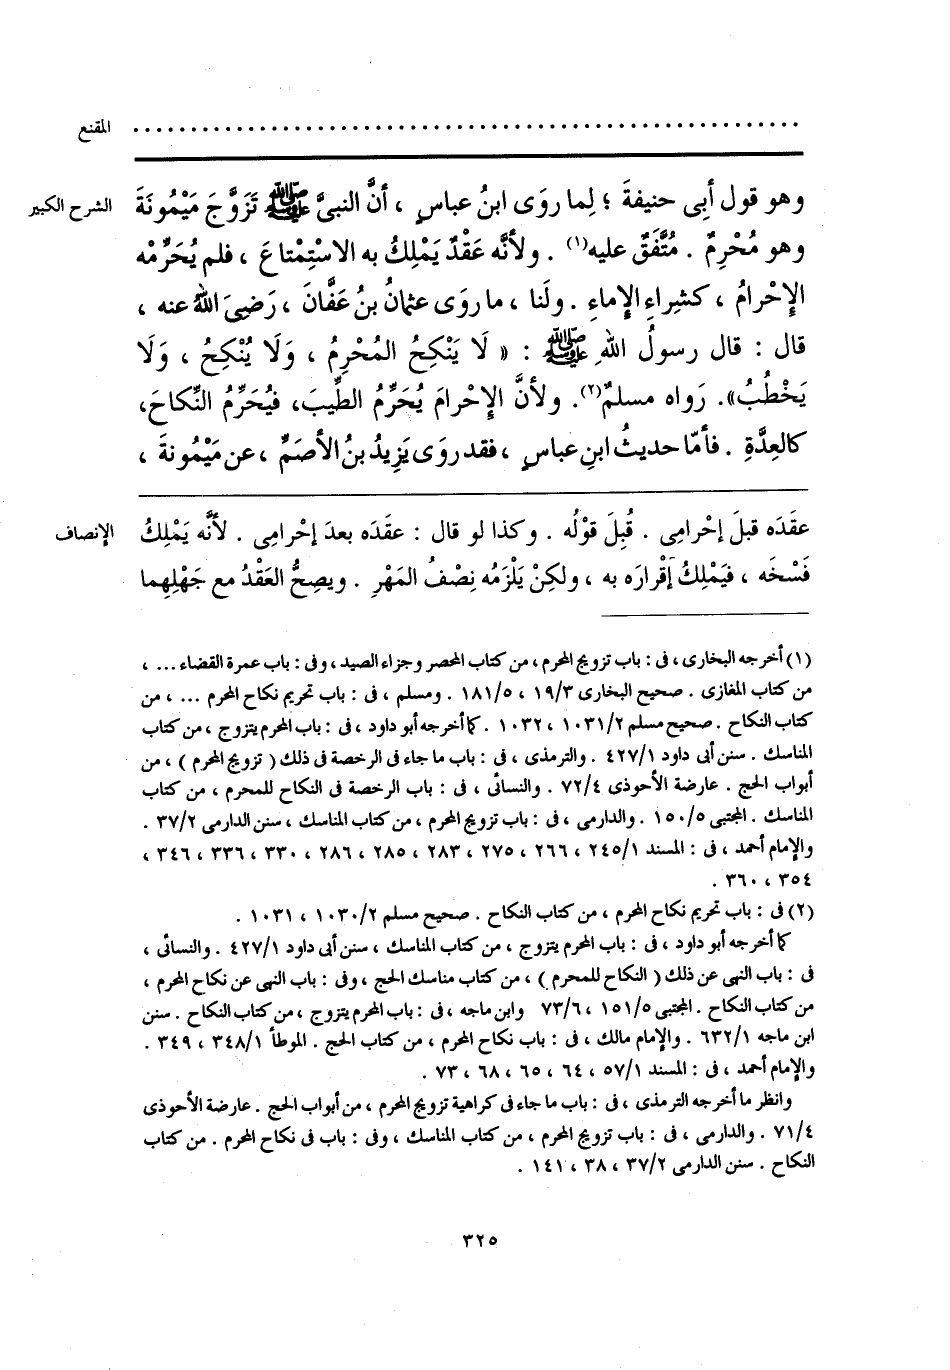 المقنع ........................................................
الشرح الكبير
وهو قول أبِى حنيفةَ ؛ لِما روَى ابنُ عباسٍ ، أنَّ النبىَّ ﷺ تَزَوَّجَ مَيْمُونَةَ
وهو مُحْرِمٌ . مُتَّفَقٌ عليه(١) . ولأنَّه عَقْدٌ يَمْلِكُ به الاسْتِمْتاعَ ، فلم يُحَرِّمْه
الإِحْرامُ ، كشِراءِ الإِماءِ . ولَنا ، ما روَى عثمانُ بنُ عَفَّانَ ، رَضِىَ اللهُ عنه ،
قال : قال رسولُ اللهِ ﷺ : « لَا يَنْكِحُ المُحْرِمُ ، وَلَا يُنْكِحُ ، وَلَا
يَخْطُبُ» . رَواه مسلمٌ(٢) . ولأنَّ الإِحْرامَ يُحَرِّمُ الطِّيبَ، فيُحَرِّمُ النِّكاحَ،
كالعِدَّةِ . فأمّا حديثُ ابنِ عباسٍ ، فقد روَى يَزِيدُ بنُ الأصَمِّ ، عن مَيْمُونةَ ،
الإنصاف
عقَدَه قبلَ إحْرامِى . قُبِلَ قوْلُه . وكذا لو قال : عقَدَه بعدَ إحْرامِى . لأنَّه يَمْلِكُ
فَسْخَه ، فيَمْلِكُ إقْرارَه به ، ولكِنْ يَلْزَمُه نِصْفُ المَهْرِ . ويصِحُّ العَقْدُ مع جَهْلِهِما
(١) أخرجه البخارى ، فى : باب تزويج المحرم ، من كتاب المحصر وجزاء الصيد ، وفى : باب عمرة القضاء ... ،
من كتاب المغازى . صحيح البخارى ١٩/٣ ، ١٨١/٥ . ومسلم ، فى : باب تحريم نكاح المحرم ... ، من
كتاب النكاح . صحيح مسلم ١٠٣١/٢ ، ١٠٣٢ . كما أخرجه أبو داود ، فى : باب المحرم يتزوج ، من كتاب
المناسك . سنن أبى داود ٤٢٧/١ . والترمذى ، فى : باب ما جاء فى الرخصة فى ذلك ( تزويج المحرم ) ، من
أبواب الحج . عارضة الأحوذى ٧٢/٤ . والنسائى ، فى : باب الرخصة فى النكاح للمحرم ، من كتاب
المناسك . المجتبى ١٥٠/٥ . والدارمى ، فى : باب تزويج المحرم ، من كتاب المناسك ، سنن الدارمى ٣٧/٢ .
والإمام أحمد ، فى : المسند ٢٤٥/١ ، ٢٦٦ ، ٢٧٥ ، ٢٨٣ ، ٢٨٥ ، ٢٨٦ ، ٣٣٠ ، ٣٣٦ ، ٣٤٦ ،
٣٥٤ ، ٣٦٠ .
(٢) فى : باب تحريم نكاح المحرم ، من كتاب النكاح . صحيح مسلم ١٠٣٠/٢ ، ١٠٣١ .
كما أخرجه أبو داود ، فى : باب المحرم يتزوج ، من كتاب المناسك ، سنن أبى داود ٤٢٧/١ . والنسائى ،
فى : باب النهى عن ذلك ( النكاح للمحرم ) ، من كتاب مناسك الحج ، وفى : باب النهى عن نكاح المحرم ،
من كتاب النكاح . المجتبى ١٥١/٥ ، ٧٣/٦ وابن ماجه ، فى : باب المحرم يتزوج ، من كتاب النكاح . سنن
ابن ماجه ٦٣٢/١ . والإمام مالك ، فى : باب نكاح المحرم ، من كتاب الحج . الموطأ ٣٤٨/١ ، ٣٤٩ .
والإمام أحمد ، فى : المسند ٥٧/١ ، ٦٤ ، ٦٥ ، ٦٨ ، ٧٣ .
وانظر ما أخرجه الترمذى ، فى : باب ما جاء فى كراهية تزويج المحرم ، من أبواب الحج . عارضة الأحوذى
٧١/٤ . والدارمى ، فى : باب تزويج المحرم ، من كتاب المناسك ، وفى : باب فى نكاح المحرم . من كتاب
النكاح . سنن الدارمى ٣٧/٢ ، ٣٨ ، ١٤١ .
٣٢٥